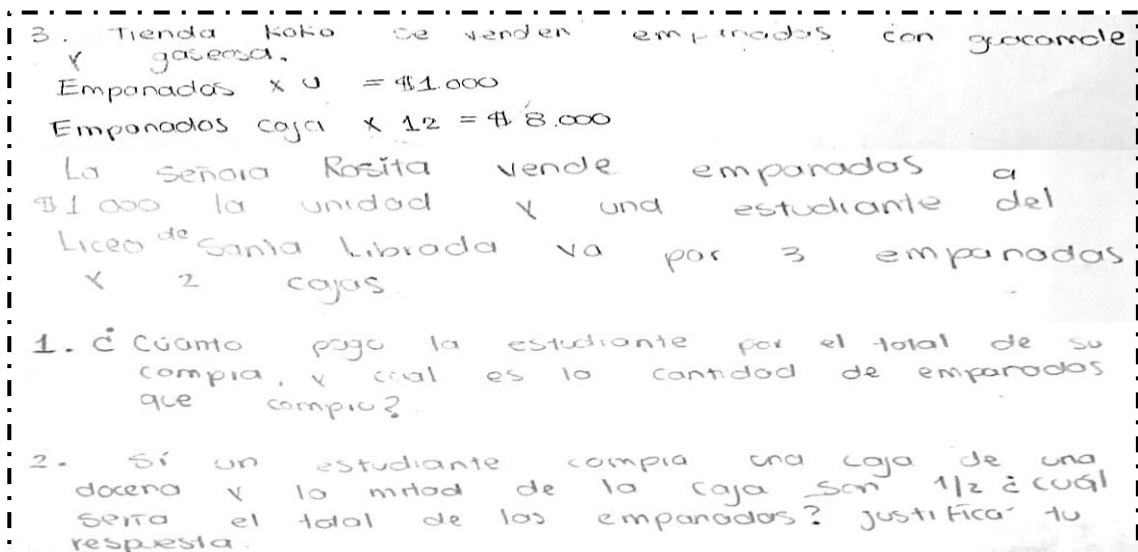 3. Tienda Koko se venden empanadas con guacamole
y gaseosa.
Empanadas x U = $1.000
Empanadas caja x 12 = $ 8.000
La señora Rosita vende empanadas a
$1 000 la unidad y una estudiante del
Liceo de Santa Librada va por 3 empanadas
y 2 cajas
1. ¿Cuánto pago la estudiante por el total de su
compra, y cual es la cantidad de empanadas
que compro?
2. Sí un estudiante compra una caja de una
docena y la mitad de la caja son 1/2 ¿cuál
sería el total de las empanadas? justifica tu
respuesta.